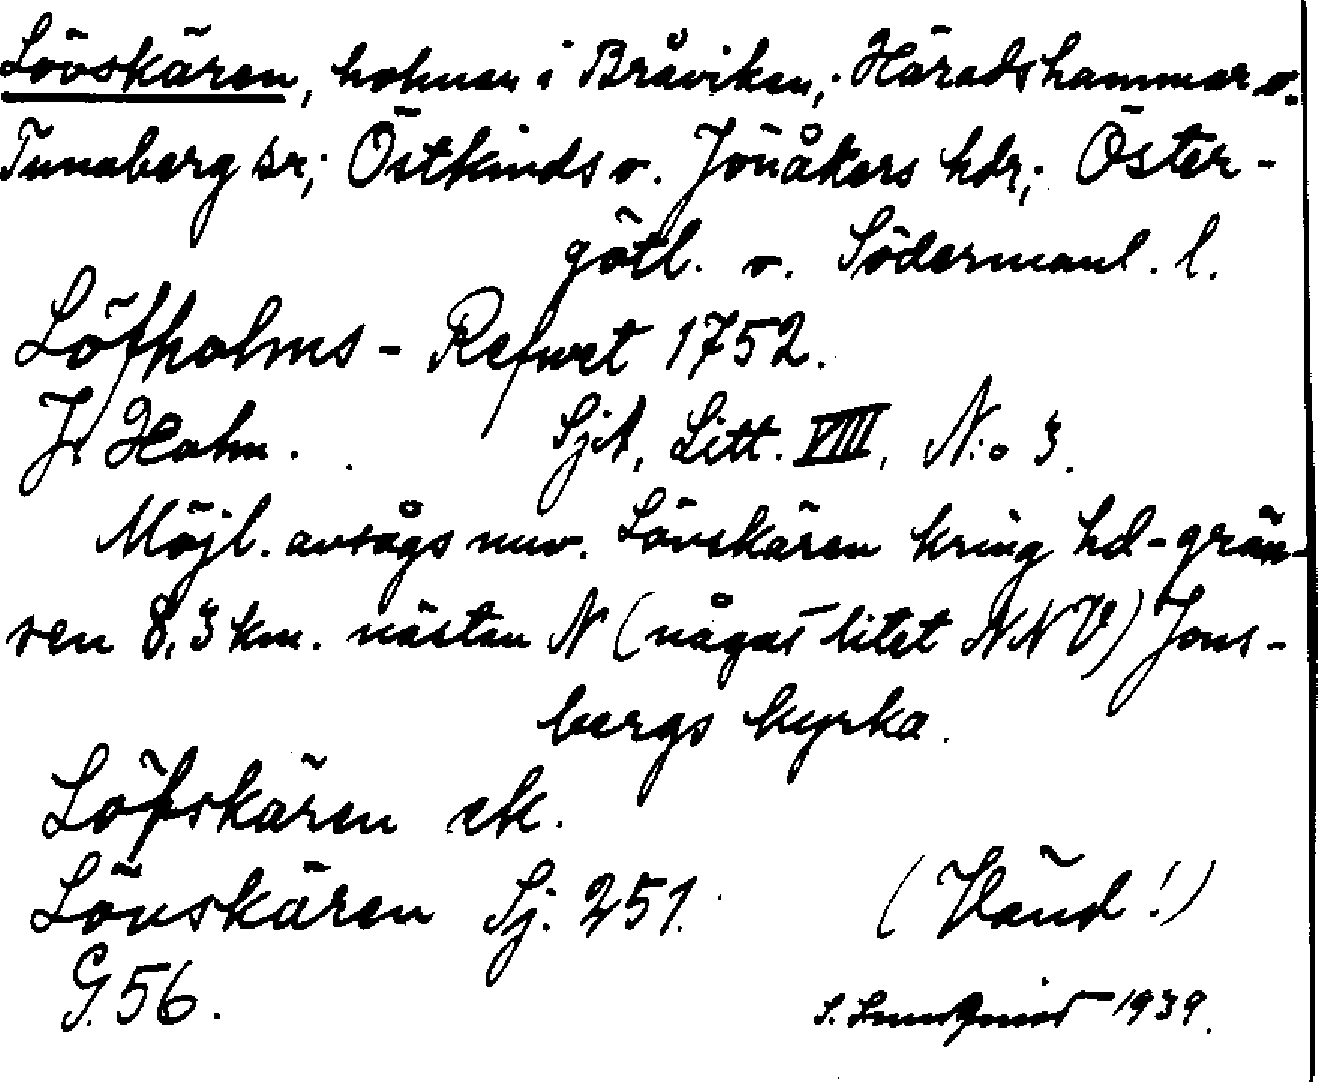 Lövskären, holmar i Bråviken; Häradshammar o.
Tunaberg sr; Östkinds o. Jönåkers hdr; Öster-
götl. o. Södermanl. l.
Löfholms-Refwet 1752.
J. Hahn. Sjk, Litt. VIII, N:o 3.
Möjl. avsågs nuv. Lövskären kring hd-grän-
sen 8,3 km. nästan N (något litet NNV) Jons-
bergs kyrka.
Löfskären ek.
Lövskären Sj. 251.
(Vänd!)
G. 56.
S. 1939.